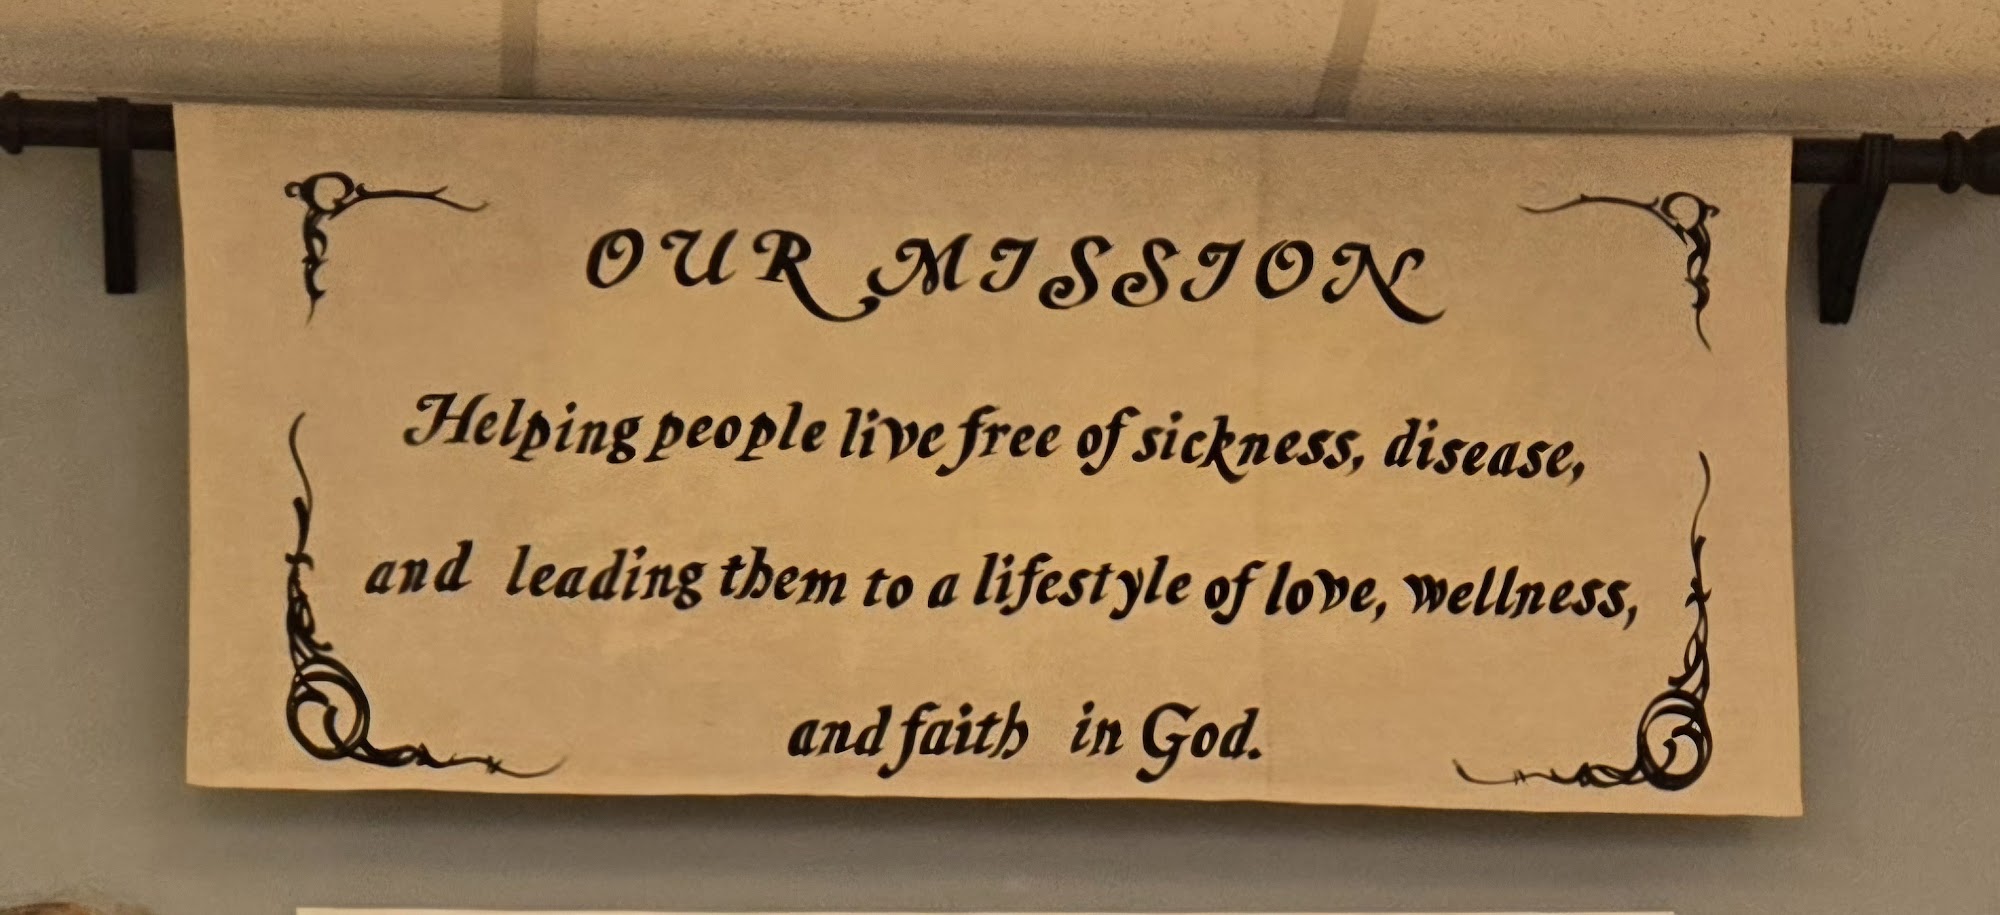 OUR MISSION
Helping people live free of sickness, disease,
and leading them to a lifestyle of love, wellness,
and faith in God.